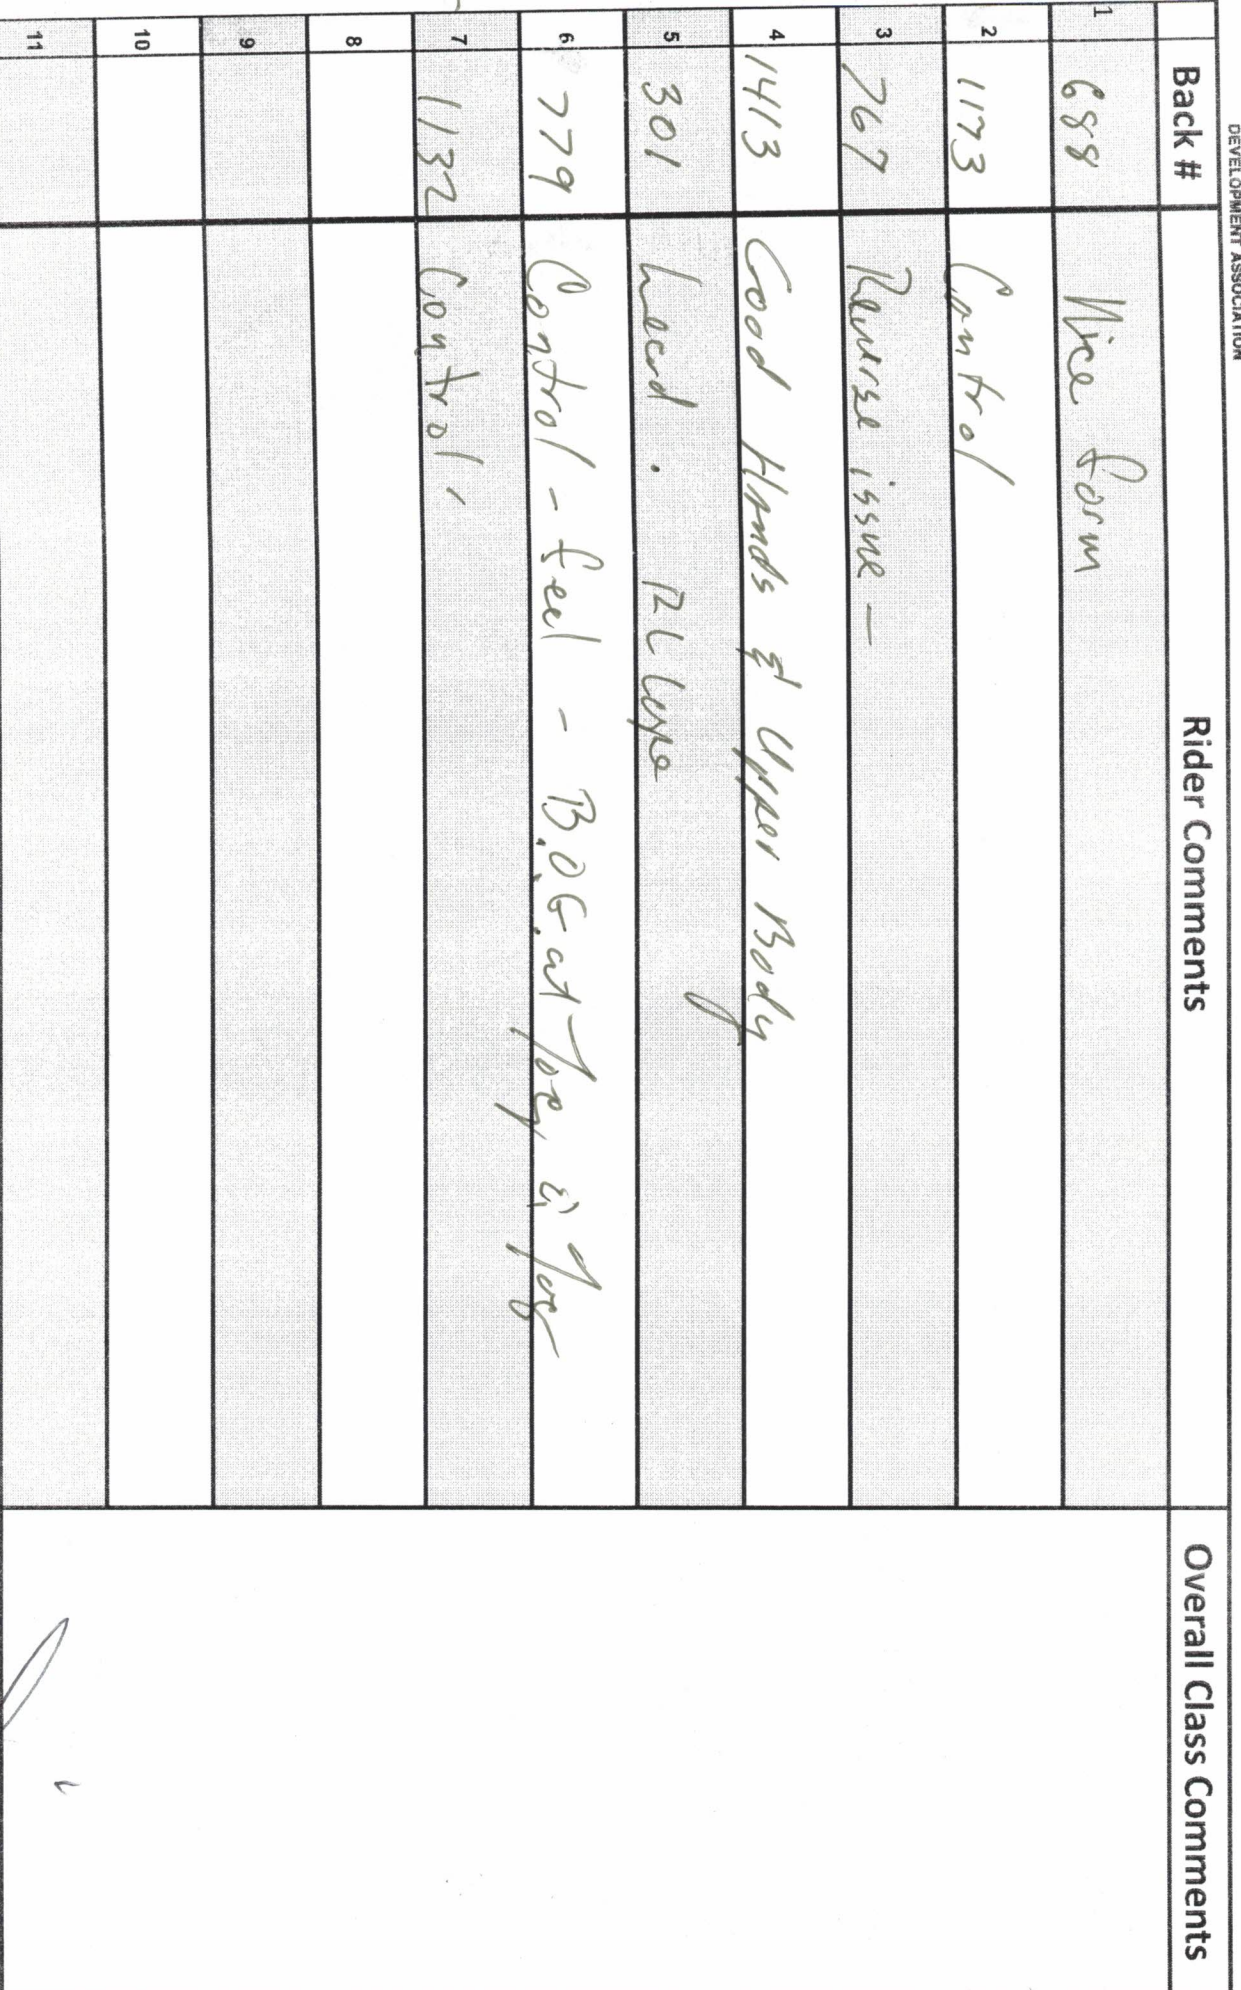 DEVELOPMENT ASSOCIATION
Back # Rider Comments Overall Class Comments
1 688 Nice form
2 1173 Control
3 767 Reverse issue —
4 1413 Good Hands & Upper Body
5 301 Lead .
6 779 Control - feel - B.O.G. at Jog
7 1132 Control,
8
9
10
11